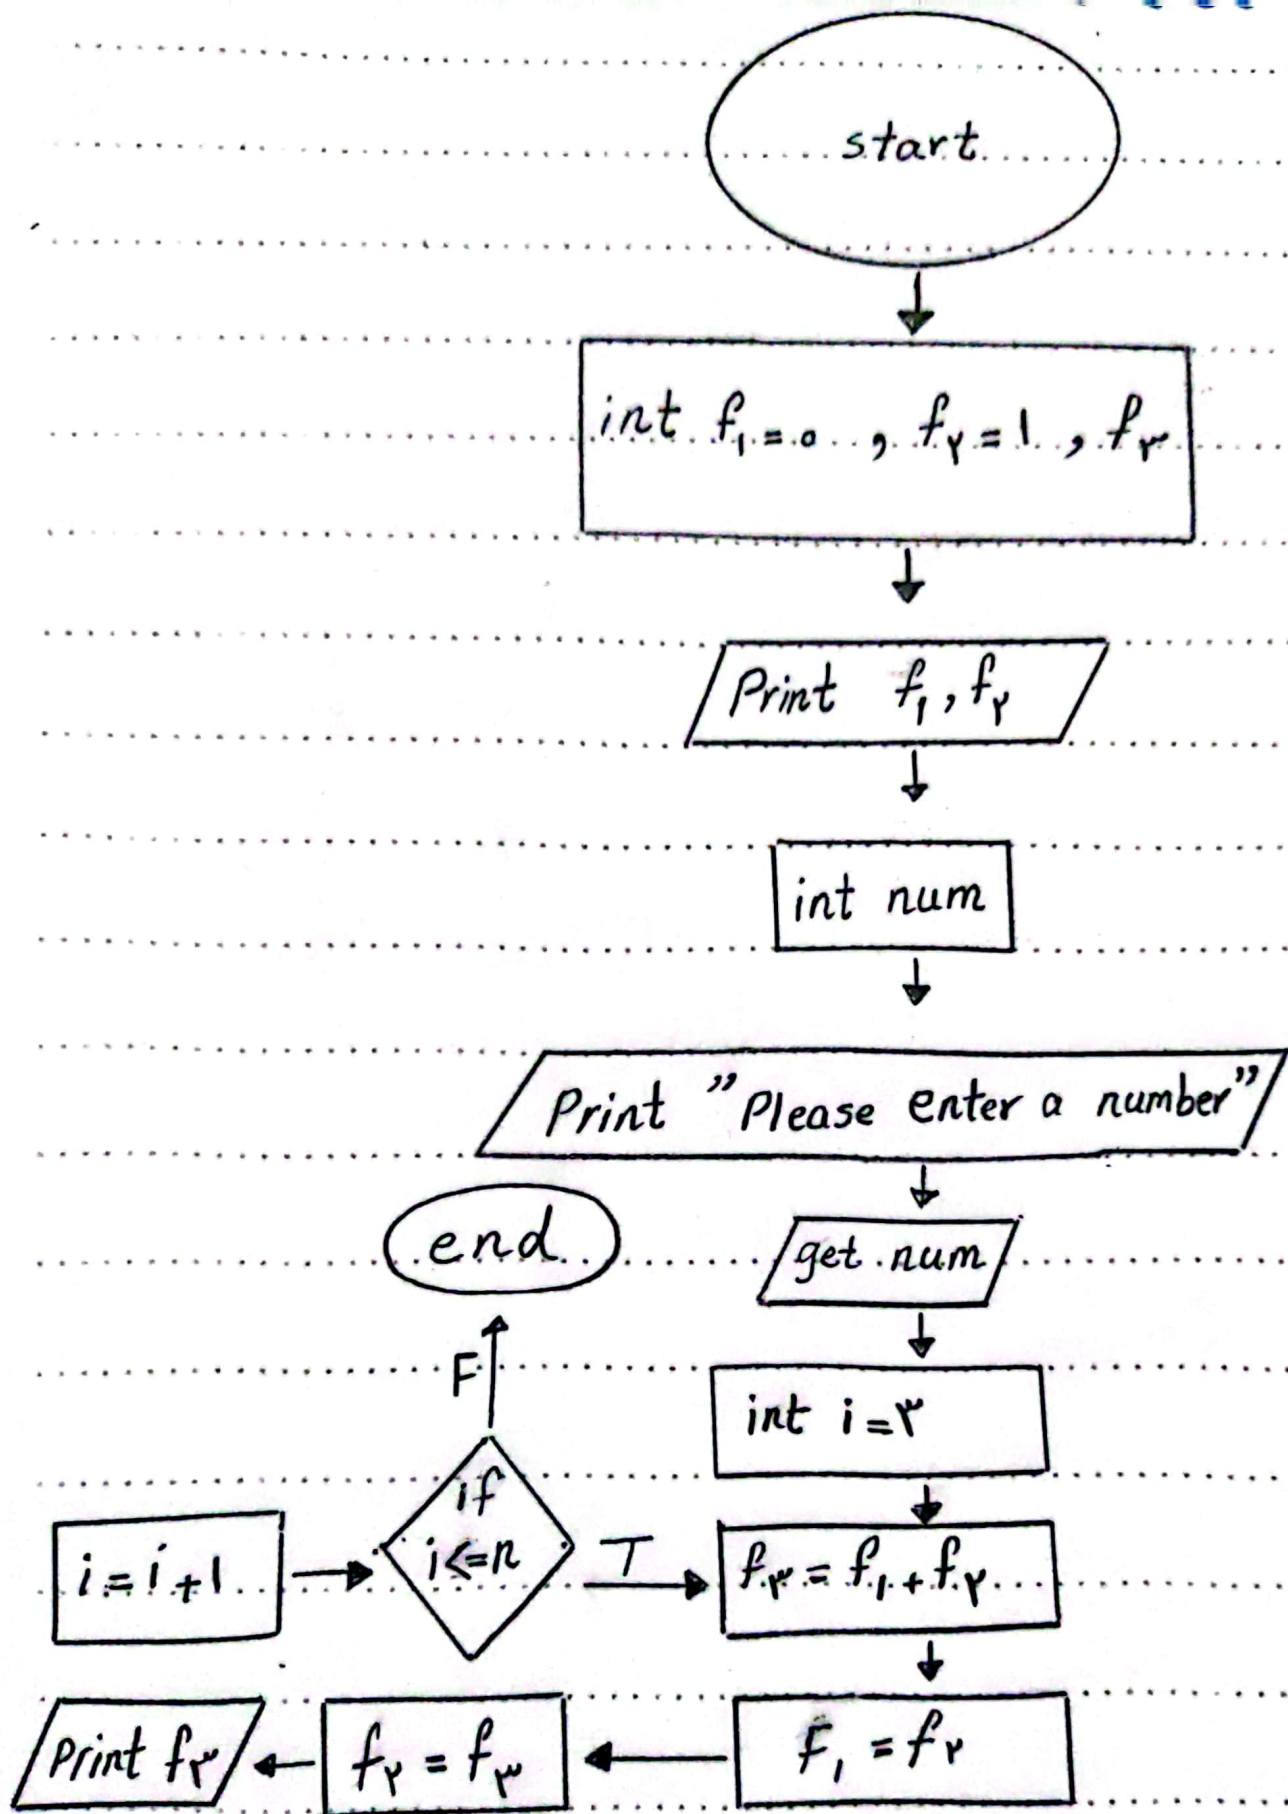 start
int f₁=۰ , f۲=۱ , f۳
Print f۱, f۲
int num
Print "Please enter a number"
get num
int i=۳
f۳=f۱+f۲
F۱=f۲
f۲=f۳
Print f۳
i=i+۱
if
i<=n
T
F
end